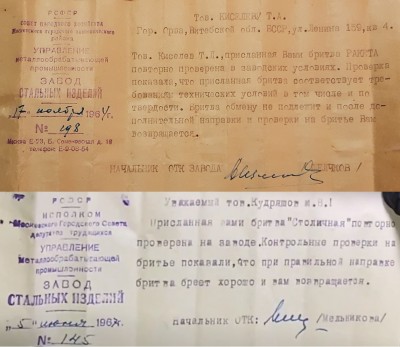 РСФСР
Московский городской
района
УПРАВЛЕНИЕ
металлообрабатывающей
промышленности
ЗАВОД
СТАЛЬНЫХ ИЗДЕЛИЙ
17 ноября 1964г.
№ 198
Тов. КИСЕЛЕВУ Т.Л.
Гор. Орша, Витебской обл. БССР, ул. Ленина 159, кв 4.
Тов. Киселев Т.Л., присланная Вами бритва РАКЕТА
повторно проверена в заводских условиях. Проверка
показала, что присланная бритва соответствует тре-
бованиям технических условий в том числе и по
твердости. Бритва обмену не подлежит и после до-
полнительной направки и проверки на бритье Вам
возвращается.
НАЧАЛЬНИК ОТК ЗАВОДА
РСФСР
ИСПОЛКОМ
Московского Городского Совета
депутатов трудящихся
УПРАВЛЕНИЕ
металлообрабатывающей
промышленности
ЗАВОД
СТАЛЬНЫХ ИЗДЕЛИЙ
"5" июня 196
№ 145
Уважаемый тов. Кудряшов
Присланная вами бритва "Столичная" повторно
проверена на заводе. Контрольные проверки на
бритье показали, что при правильной направке
бритва бреет хорошо и вам возвращается.
начальник ОТК: /Мельникова/